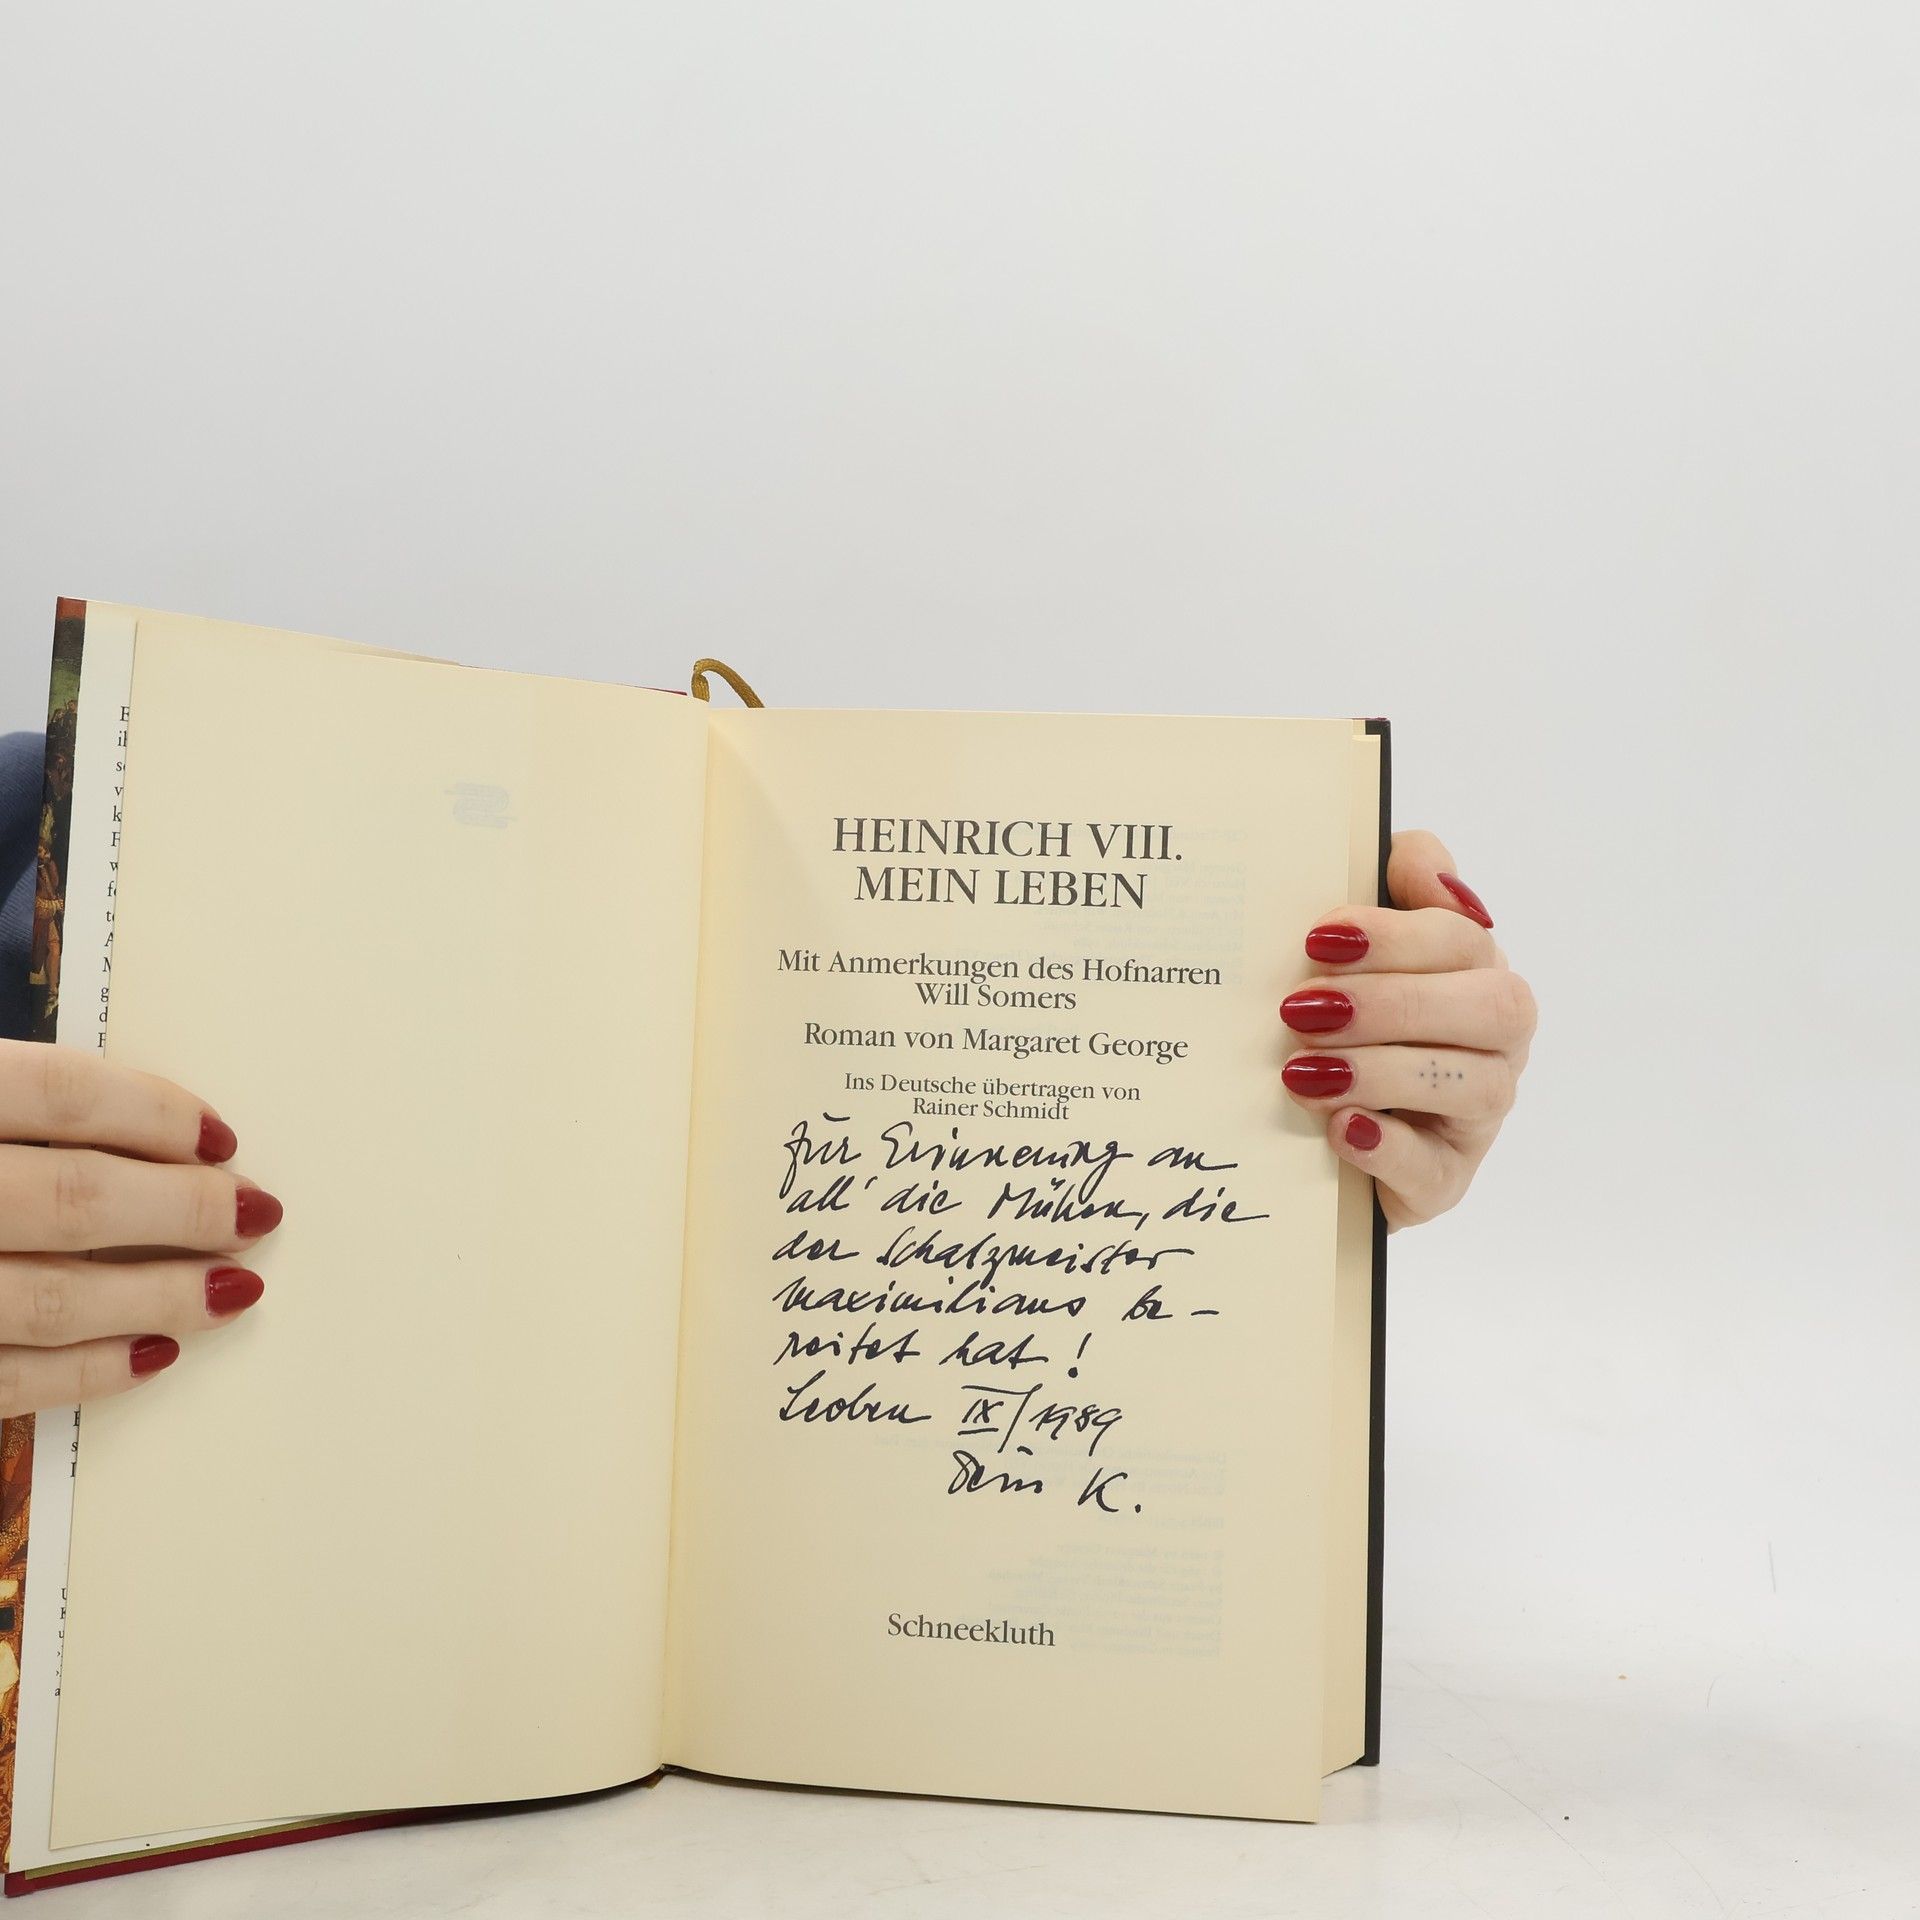 HEINRICH VIII.
MEIN LEBEN
Mit Anmerkungen des Hofnarren
Will Somers
Roman von Margaret George
Ins Deutsche übertragen von
Rainer Schmidt
Zur Erinnerung an
all' die Mühen, die
der Schatzmeister
Maximilians be-
reitet hat!
Leoben IX/1989
Dein K.
Schneekluth